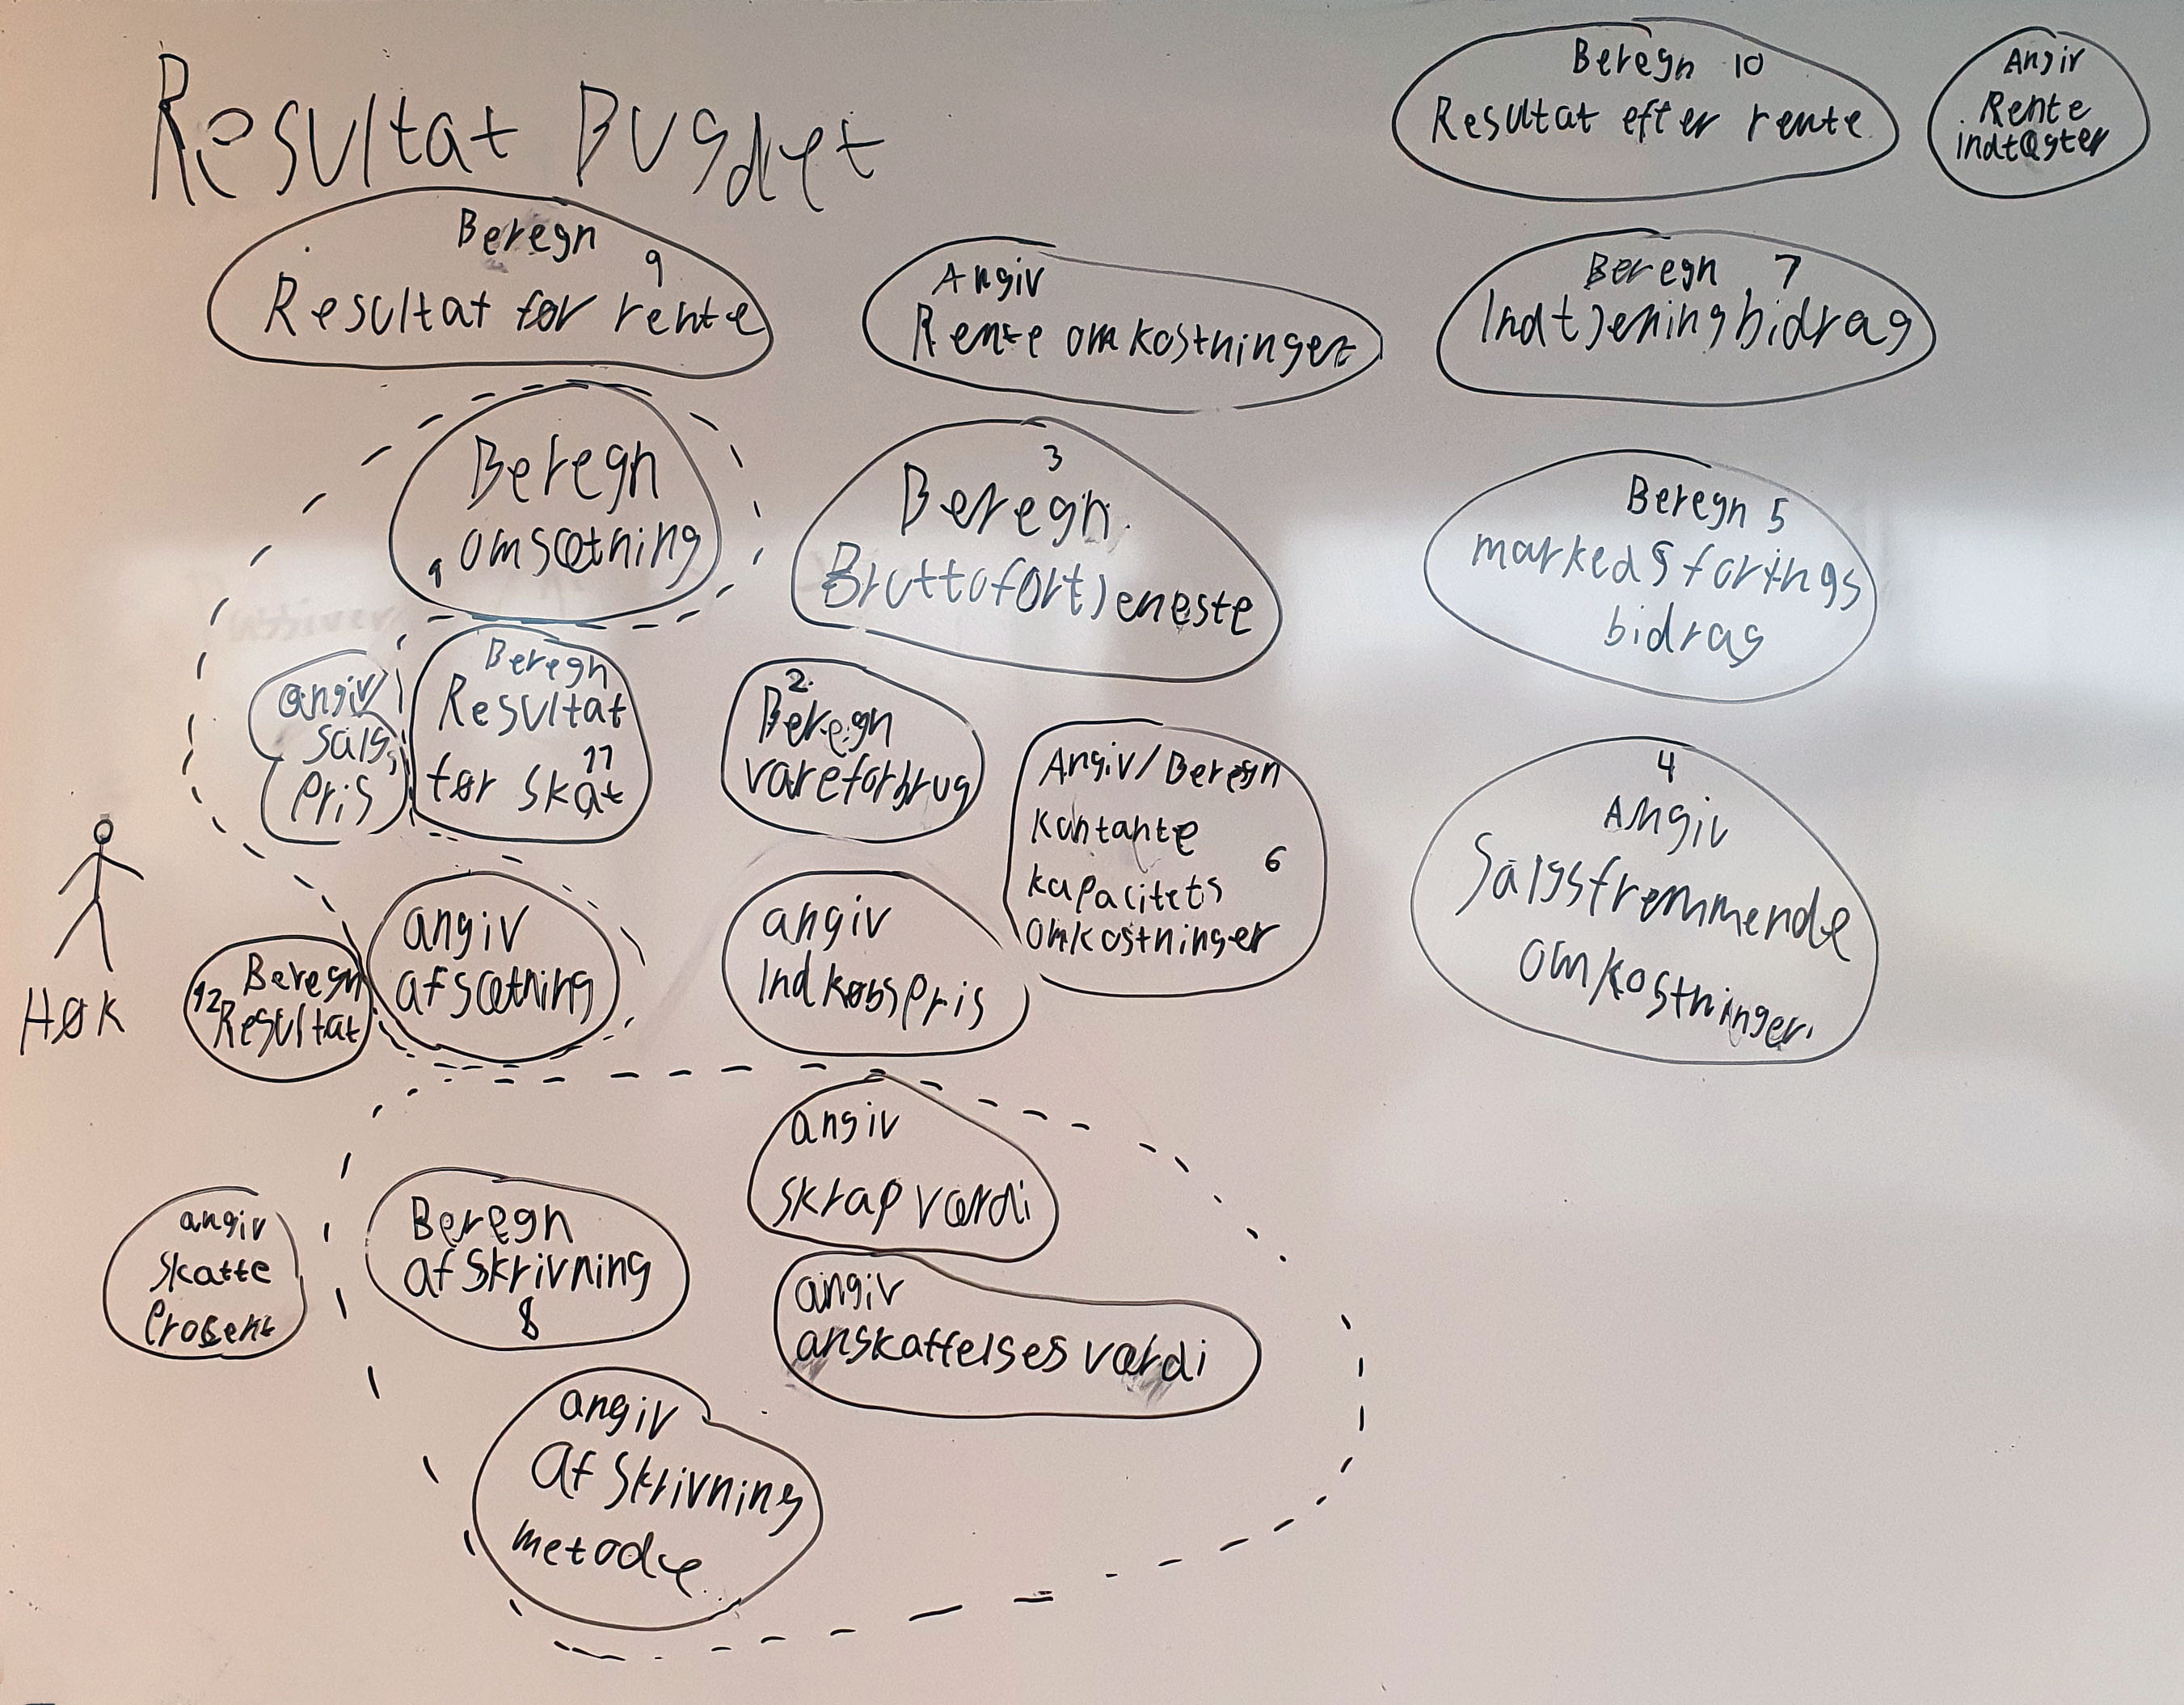 Resultat Busdet
Beregn 10
Resultat efter rente
Angiv
Rente
indtægter
Beregn
9
Resultat før rente
Angiv
Rente omkostninger
Beregn 7
Indtjeningbidrag
Beregn
1 omsætning
3
Beregn
Bruttofortjeneste
Beregn 5
markedsførings
bidrag
angiv
salgs
pris
Beregn
Resultat
11
før skat
2.
Beregn
vareforbrug
Angiv/Beregn
kontante
6
kapacitets
omkostninger
4
Angiv
Salgsfremmende
omkostninger
HØK
12 Beregn
Resultat
angiv
afsætning
angiv
Indkøbspris
angiv
skrapværdi
angiv
skatte
procent
Beregn
afskrivning
8
angiv
anskaffelsesværdi
angiv
afskrivning
metode